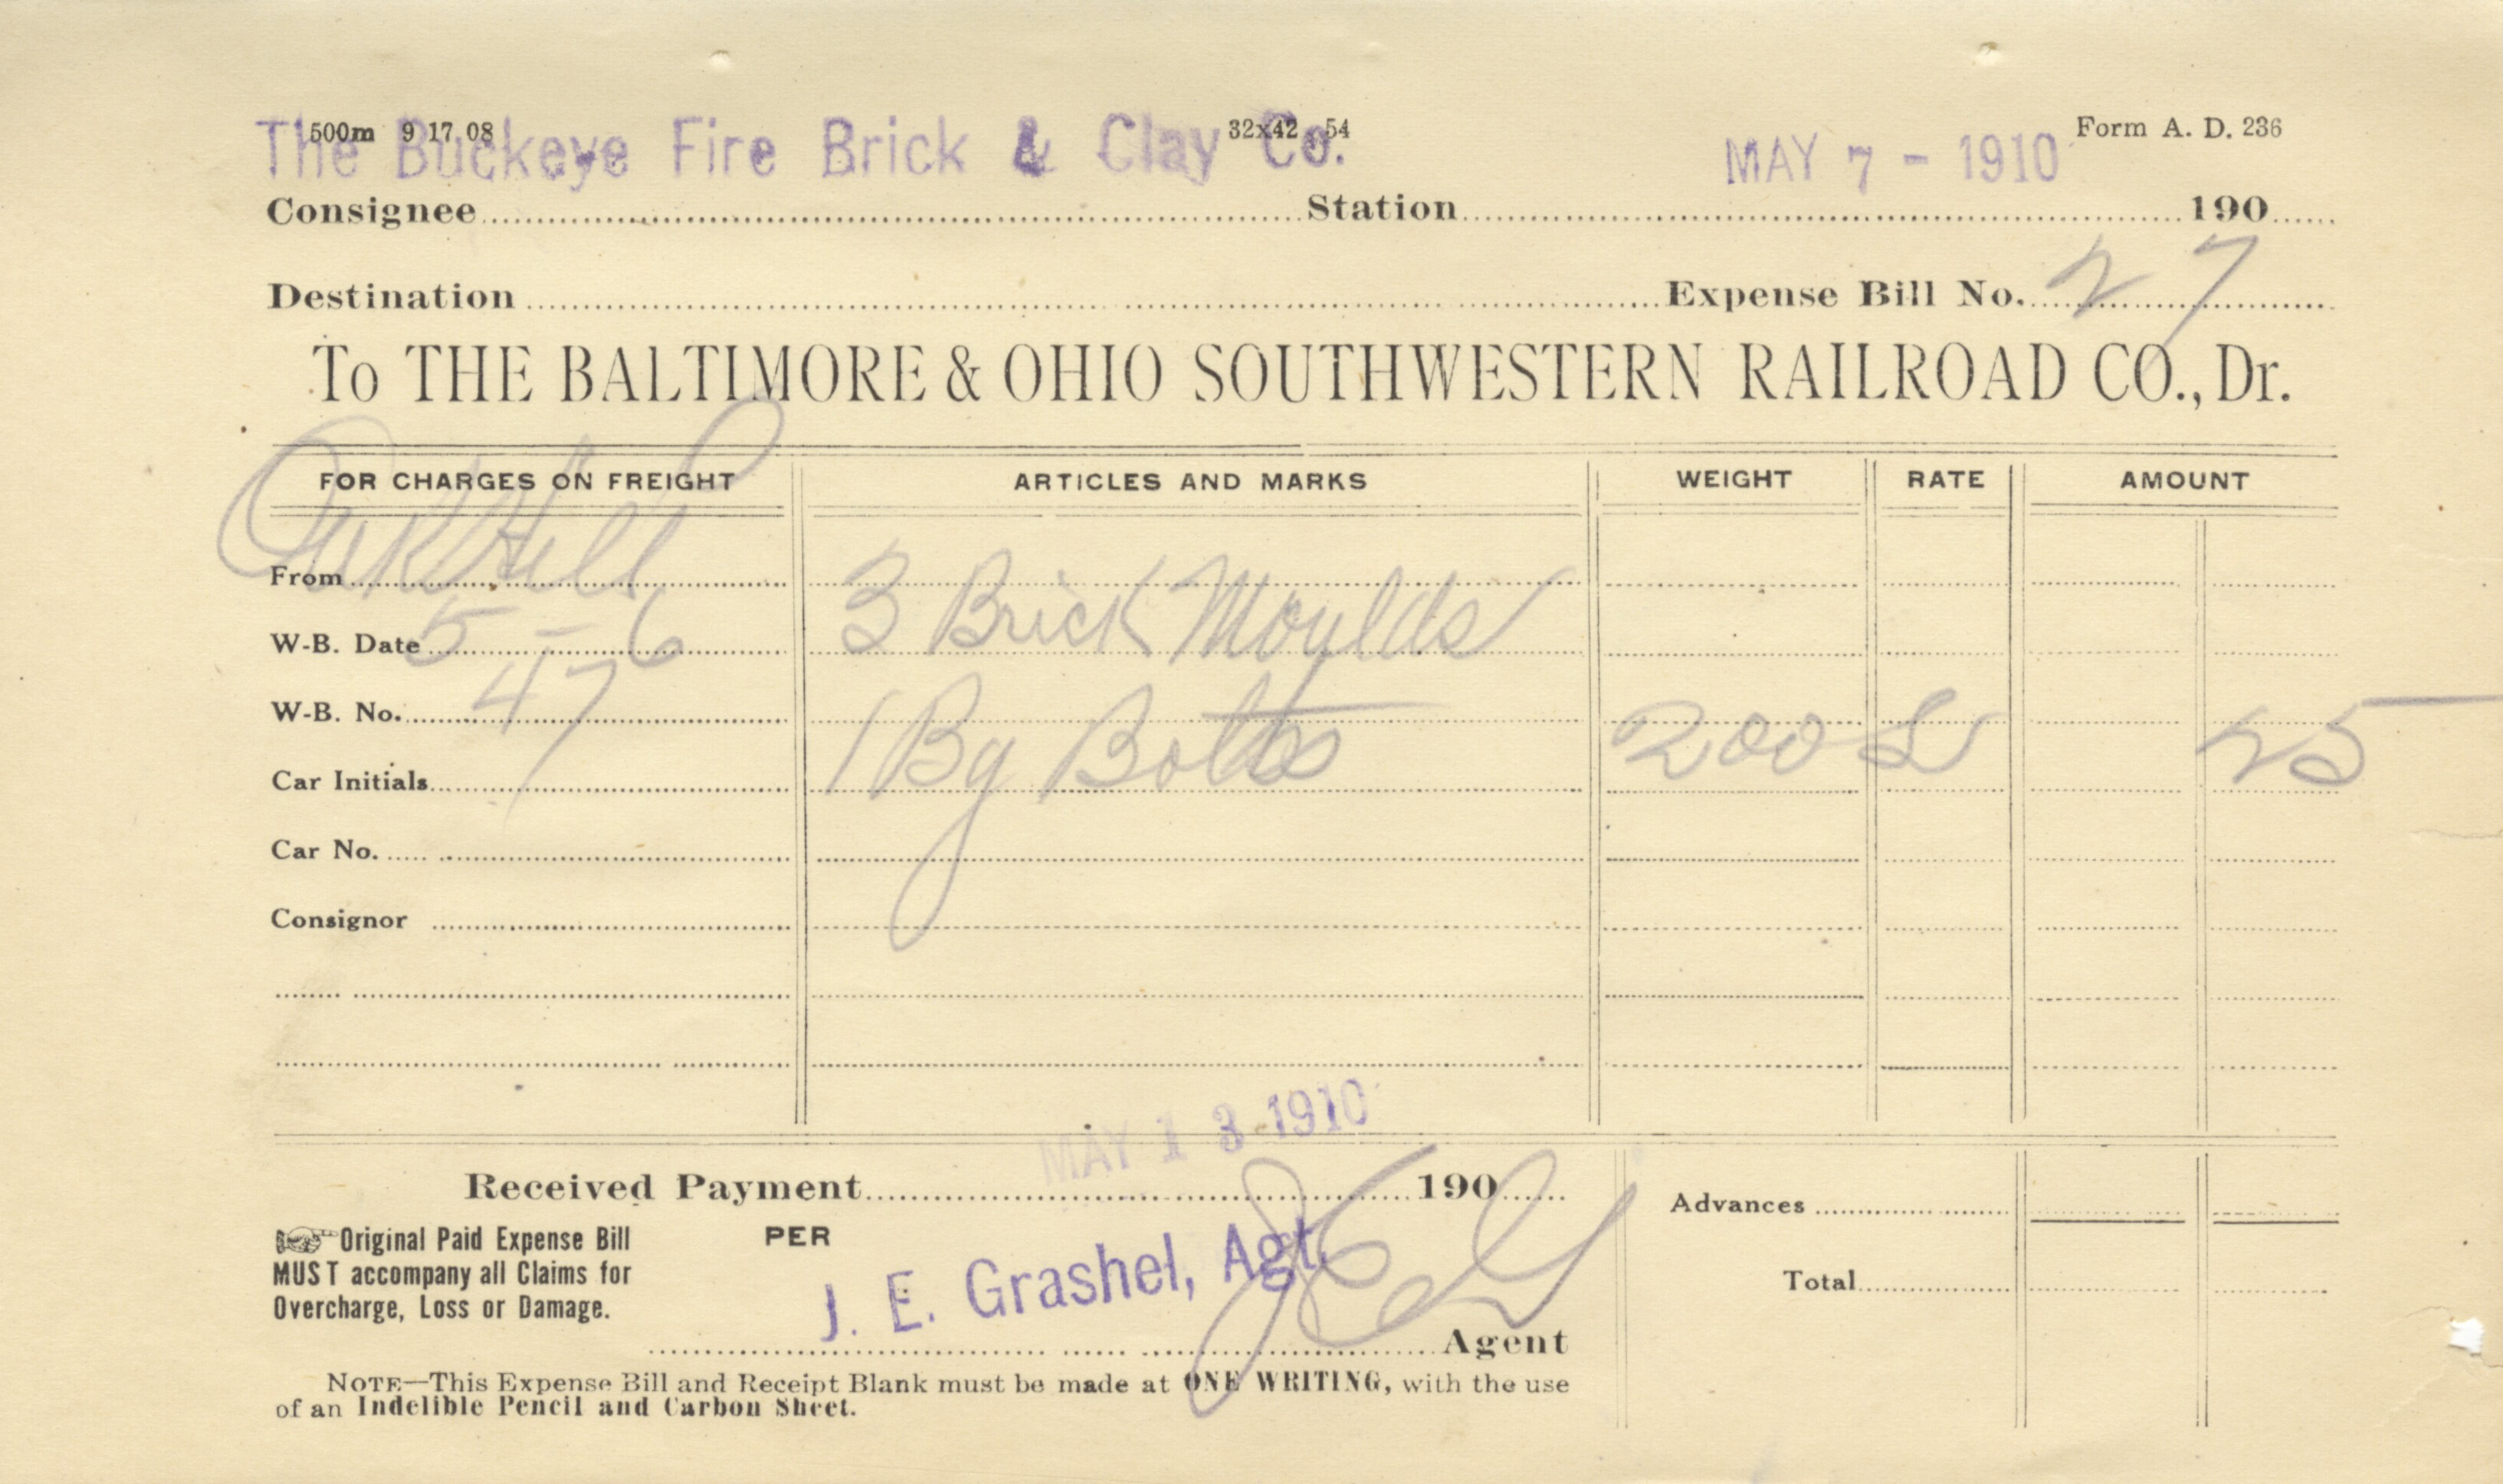 500m 9 17 08 32x42 54 Form A. D. 236
The Buckeye Fire Brick & Clay Co. MAY 7 - 1910
Consignee Station 190
Destination Expense Bill No. 27
To THE BALTIMORE & OHIO SOUTHWESTERN RAILROAD CO., Dr.
FOR CHARGES ON FREIGHT ARTICLES AND MARKS WEIGHT RATE AMOUNT
From Oak Hill
W-B. Date 5-6 3 Brick Moulds
W-B. No. 47
Car Initials 1 Bg Bolts 200 25
Car No.
Consignor
MAY 13 1910
Received Payment 190
Advances
Original Paid Expense Bill PER
MUST accompany all Claims for
Overcharge, Loss or Damage.
J. E. Grashel, Agt.
Total
Agent
NOTE—This Expense Bill and Receipt Blank must be made at ONE WRITING, with the use
of an Indelible Pencil and Carbon Sheet.